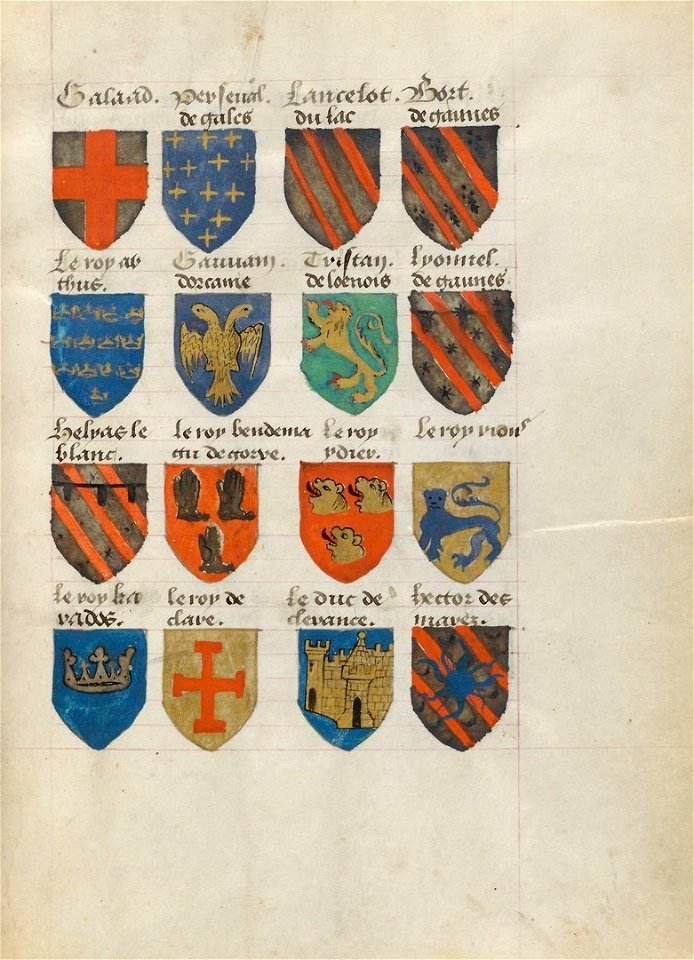 Galaad. Perseval. Lancelot. Bort.
de gales du lac de gaunes
Le roy ar Gauuain. Tristan. lyonnel.
thus. dorcanie de loenois de gaunes
Helyas le le roy bendema le roy Le roy rions
blanc. gu de gorre. ydier.
le roy ka le roy de Le duc de hector des
rados. clare. clarance. mares.